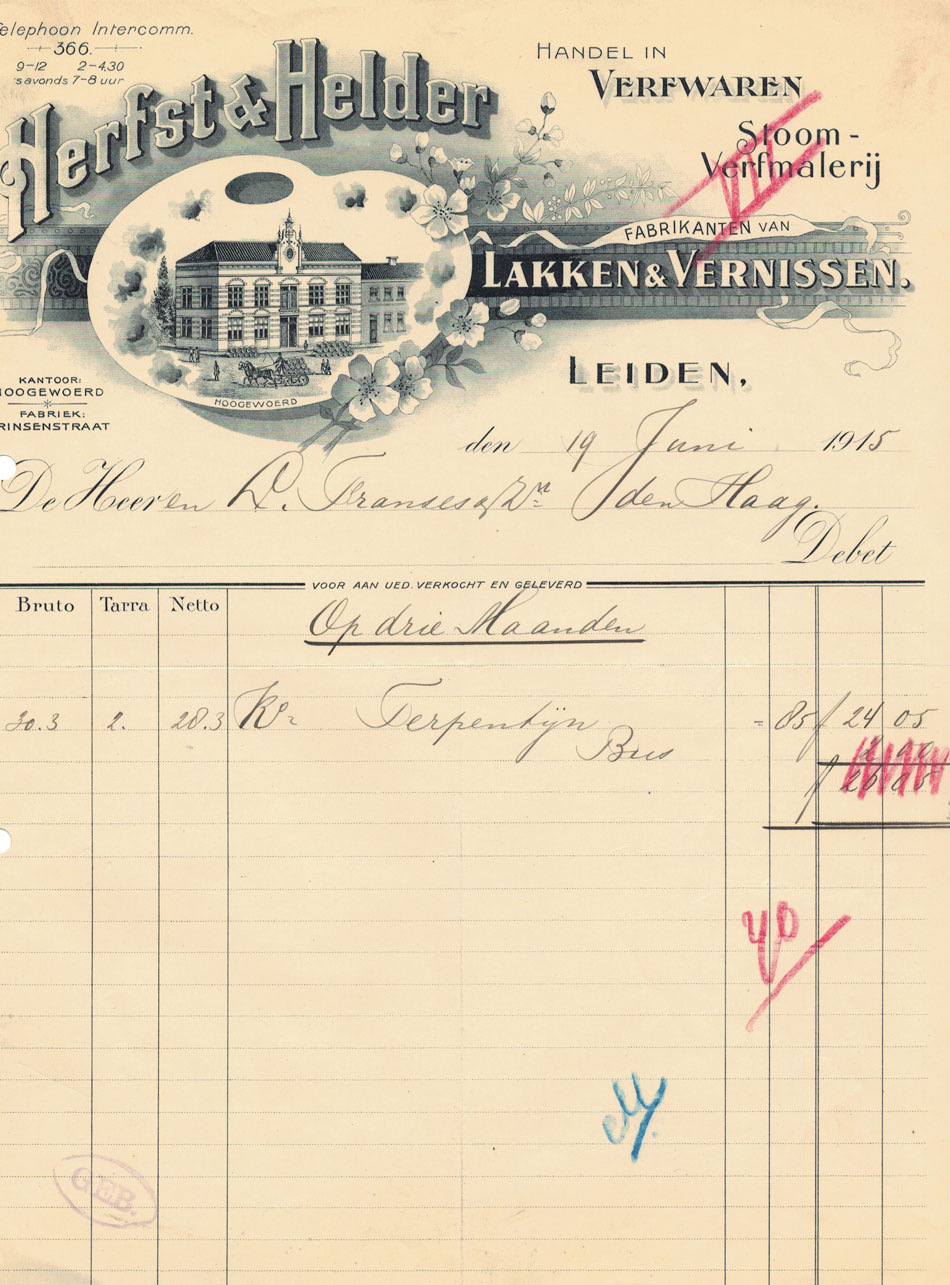 Telephoon Intercomm.
366.
9-12 2-4,30
's avonds 7-8 uur
Herfst & Helder
HANDEL IN
VERFWAREN
Stoom-
Verfmalerij
VII
FABRIKANTEN VAN
LAKKEN & VERNISSEN.
HOOGEWOERD
KANTOOR:
HOOGEWOERD
FABRIEK:
PRINSENSTRAAT
LEIDEN,
den 19 Juni 1915
De Heeren D. Franses & Zn den Haag.
Debet
VOOR AAN UED. VERKOCHT EN GELEVERD
Bruto Tarra Netto
Op drie Maanden
30.3 2. 28.3 Ko Terpentijn = 85 f 24 05
Bus 2 00
f 26 05
GEB.